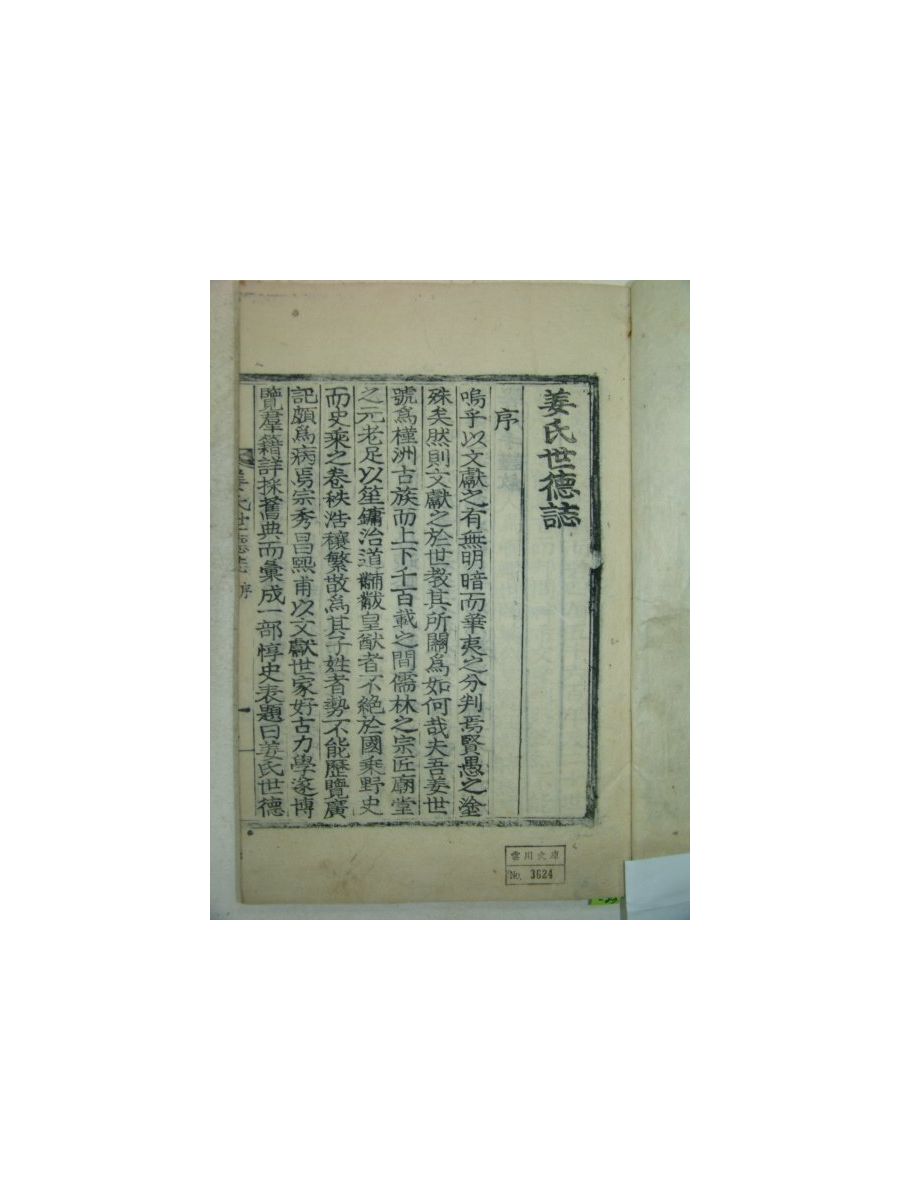 姜氏世德誌
序
嗚乎以文獻之有無明暗而華夷之分判焉賢愚之塗
殊矣然則文獻之於世教其所關爲如何哉夫吾姜世
號爲槿洲古族而上下千百載之間儒林之宗匠廟堂
之元老足以笙鏞治道黼黻皇猷者不絶於國乘野史
而史乘之卷秩浩穰繁故爲其子姓者勢不能歷覽廣
記頗爲病焉宗秀昌熙甫以文獻世家好古力學遂博
覽羣籍詳採舊典而彙成一部惇史表題曰姜氏世德
姜氏世德誌 序 一
雲川文庫
No. 3624